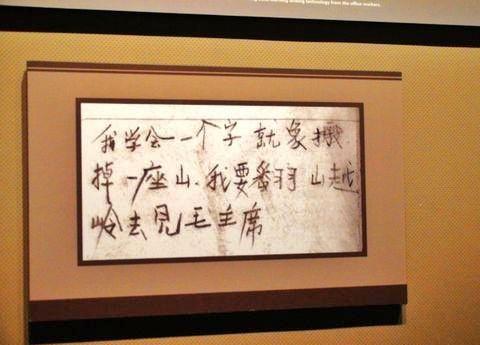 technology from the office workers.
我学会一个字 就象搬
掉一座山.我要翻山越
岭去見毛主席